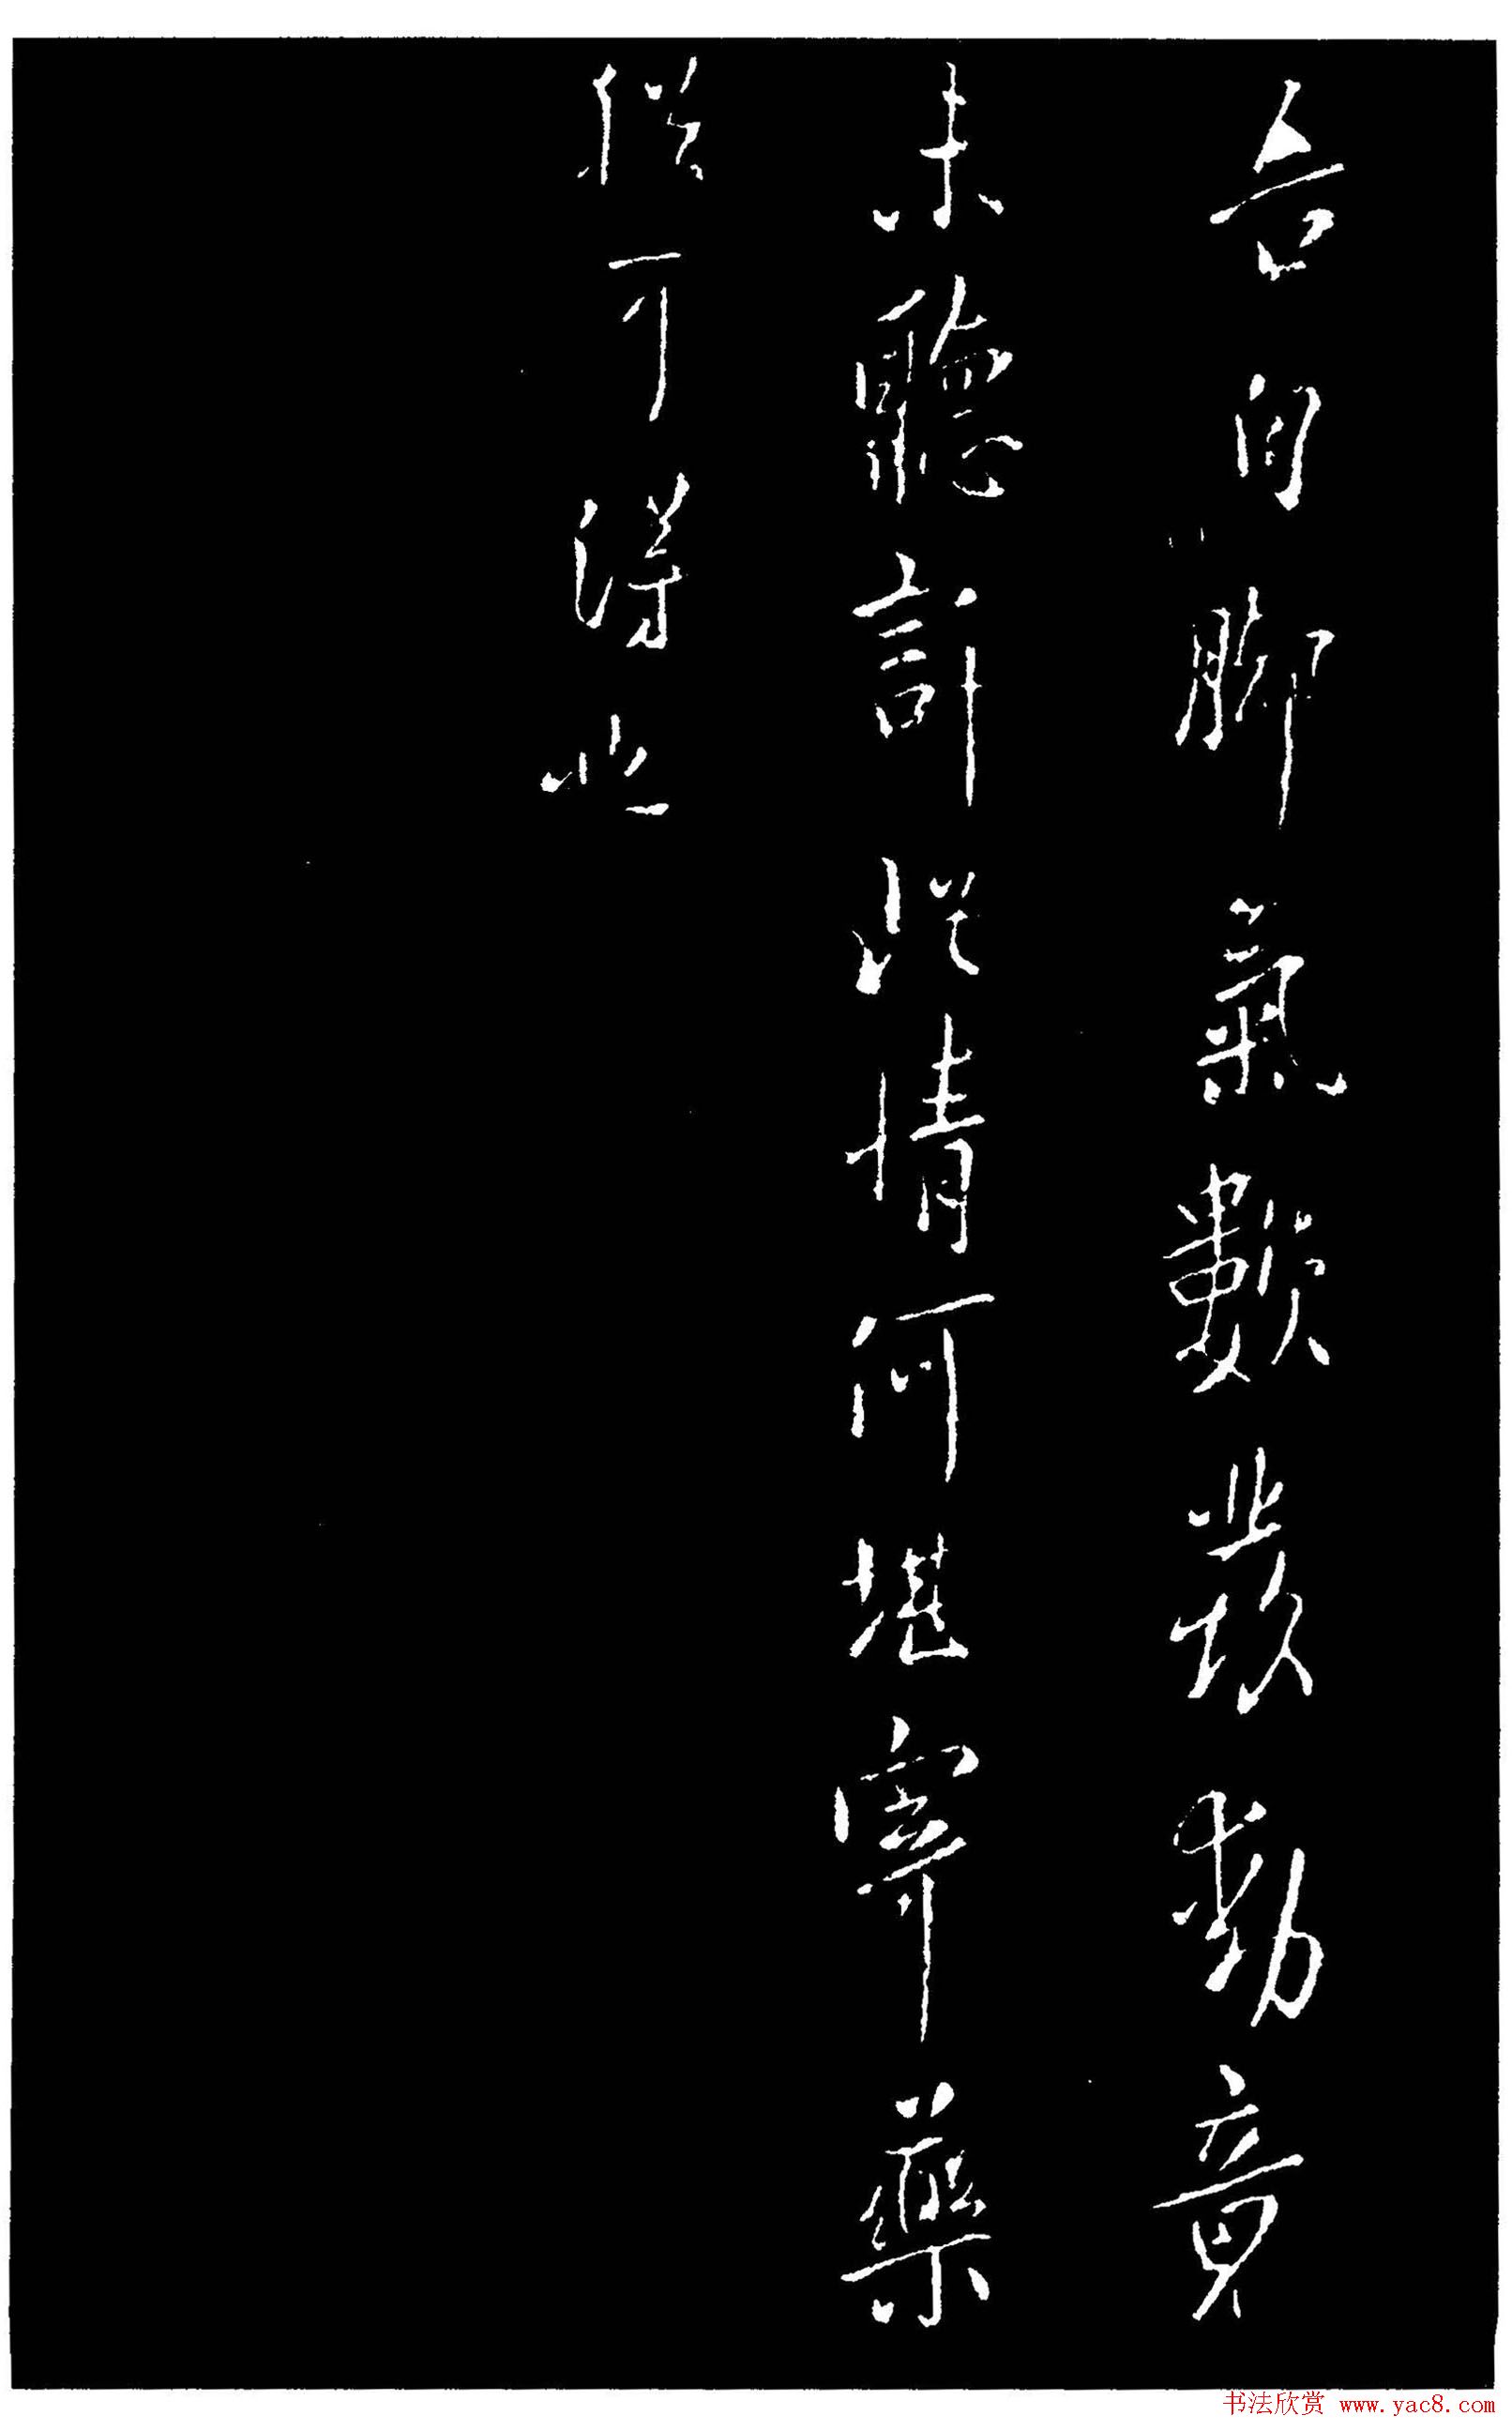 吾自脚氣數發動竟
未聽許此情何堪藥
可得也
书法欣赏 www.yac8.com